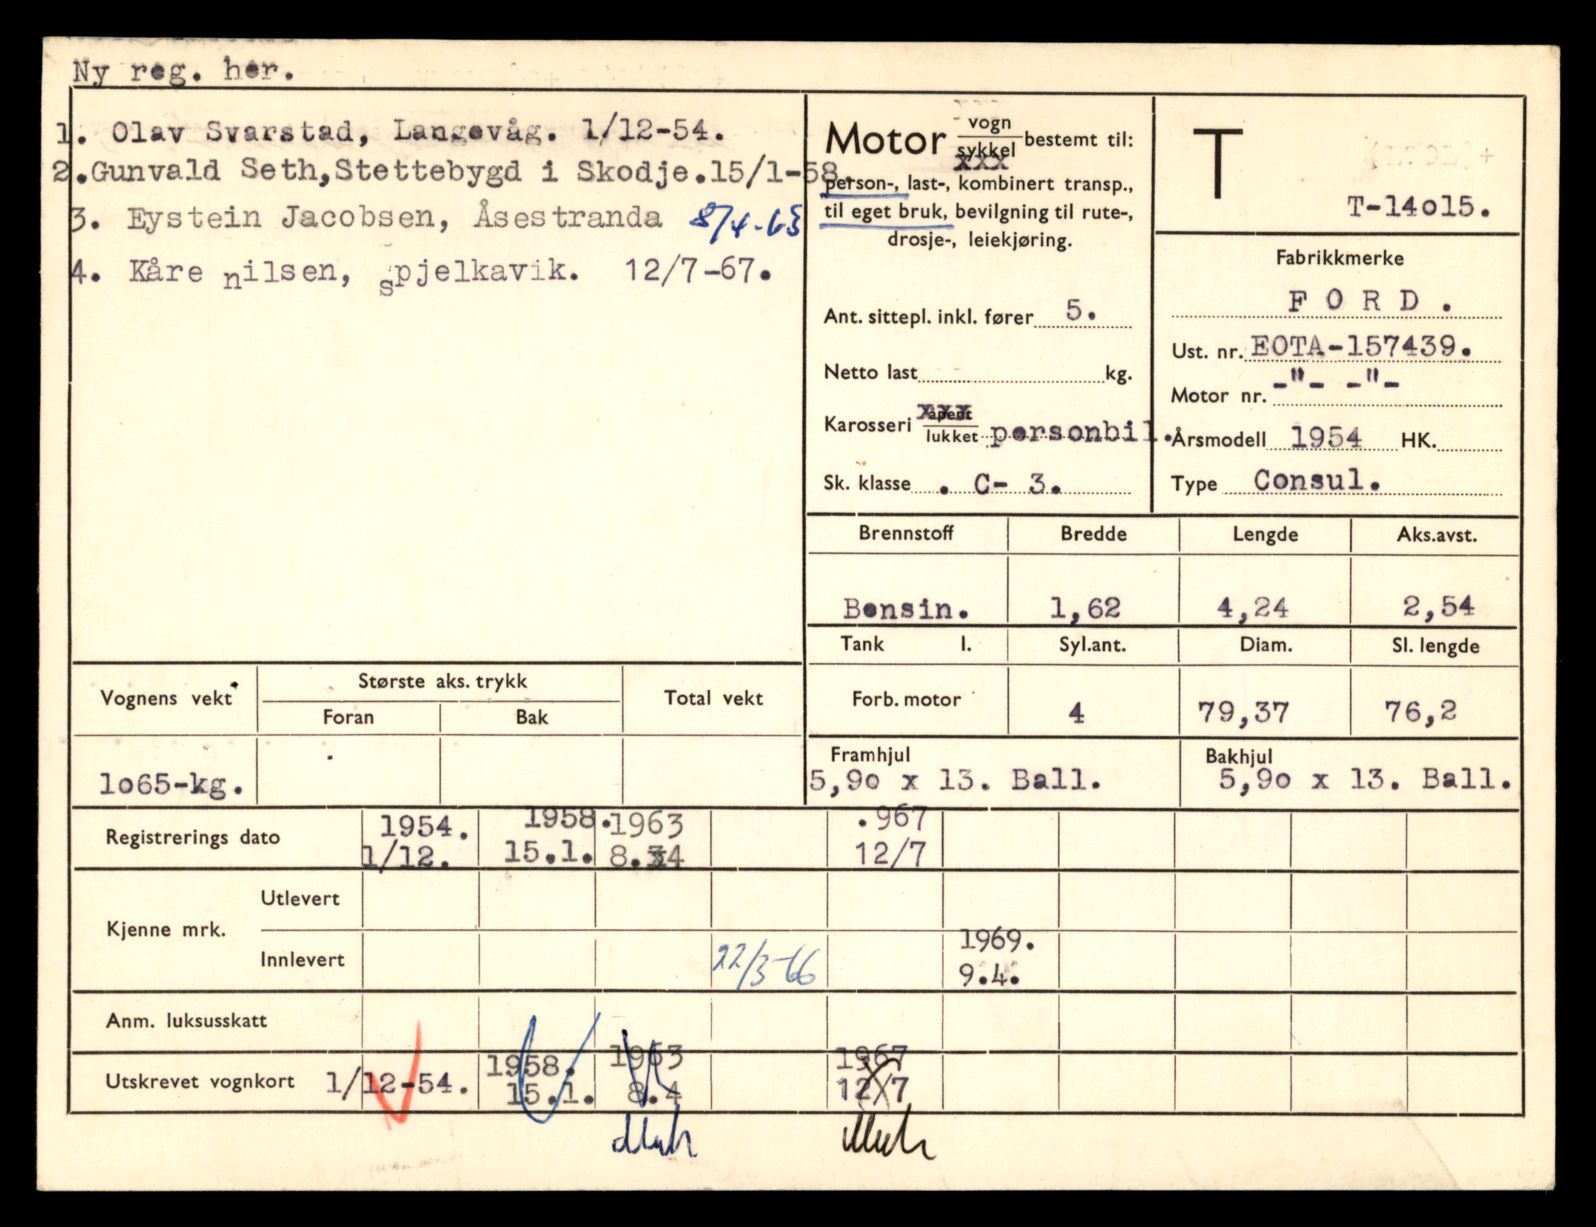 Ny reg. her.
1. Olav Svarstad, Langevåg. 1/12-54.
2.Gunvald Seth,Stettebygd i Skodje.15/1-58.
3. Eystein Jacobsen, Åsestranda 8/4-63
4. Kåre nilsen, spjelkavik. 12/7-67.
Motor vogn
sykkel bestemt til:
xxx
person-, last-, kombinert transp.,
til eget bruk, bevilgning til rute-,
drosje-, leiekjøring.
Ant. sittepl. inkl. fører 5.
Netto last kg.
Karosseri åpent xxx
lukket personbil.
Sk. klasse . C- 3.
T
T-14o15.
Fabrikkmerke
F O R D .
Ust. nr. EOTA-157439.
Motor nr. -"- -"-
Årsmodell 1954 HK.
Type Consul.
Brennstoff Bredde Lengde Aks.avst.
Bensin. 1,62 4,24 2,54
Tank l. Syl.ant. Diam. Sl. lengde
Forb. motor 4 79,37 76,2
Framhjul Bakhjul
5,9o x 13. Ball. 5,9o x 13. Ball.
Vognens vekt Største aks. trykk Total vekt
Foran Bak
1o65-kg.
Registrerings dato 1954. 1958. 1963 .967
1/12. 15.1. 8.4 12/7
Kjenne mrk.
Utlevert
Innlevert 22/3-66 1969.
9.4.
Anm. luksusskatt
Utskrevet vognkort 1/12-54. 1958. 1963 1967
15.1. 8.4 12/7